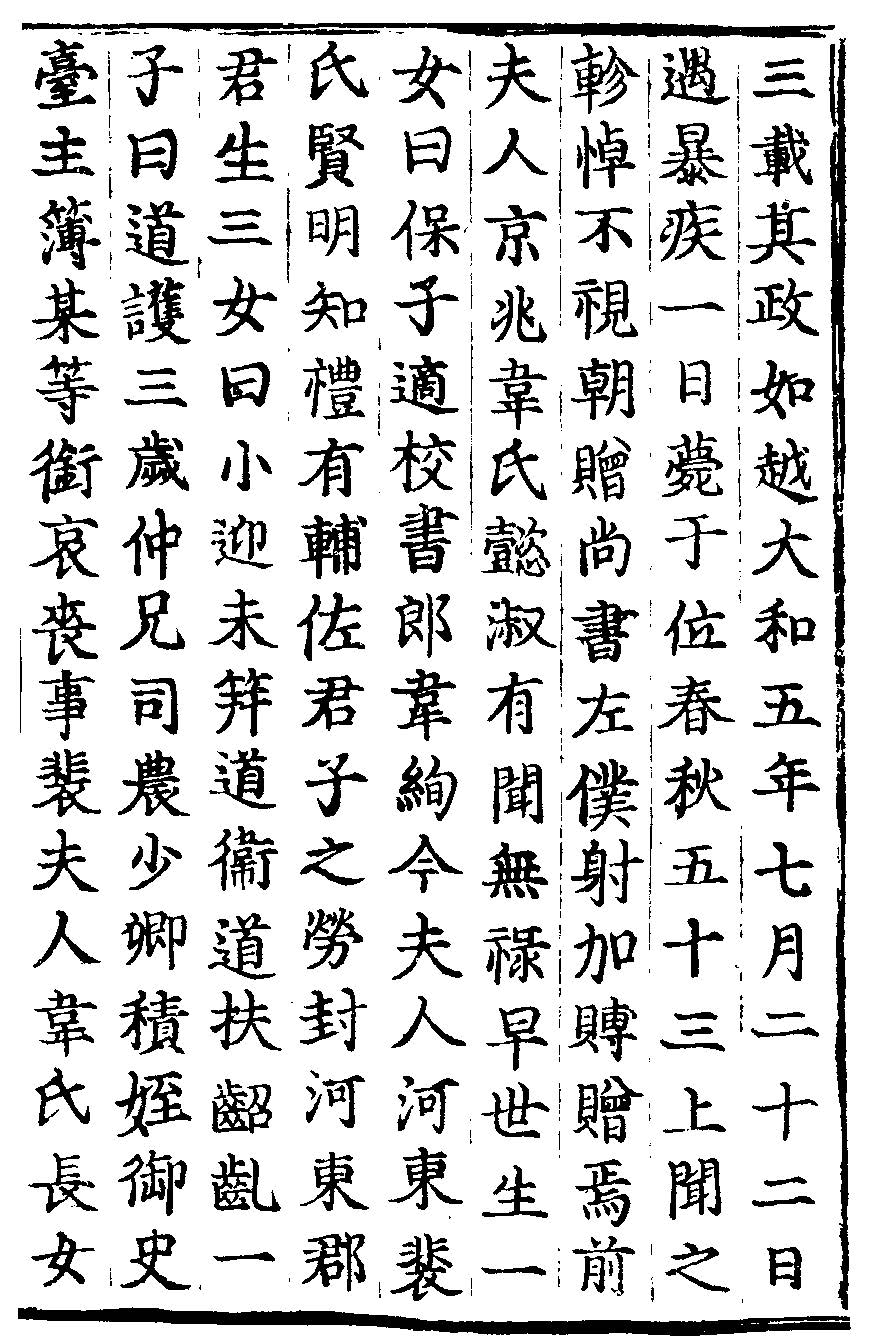 三載其政如越大和五年七月二十二日
遇暴疾一日薨于位春秋五十三上聞之
軫悼不視朝贈尚書左僕射加賻贈焉前
夫人京兆韋氏懿淑有聞無祿早世生一
女曰保子適校書郎韋絢今夫人河東裴
氏賢明知禮有輔佐君子之勞封河東郡
君生三女曰小迎未笄道衞道扶齠齔一
子曰道護三歲仲兄司農少卿積姪御史
臺主簿某等銜哀喪事裴夫人韋氏長女